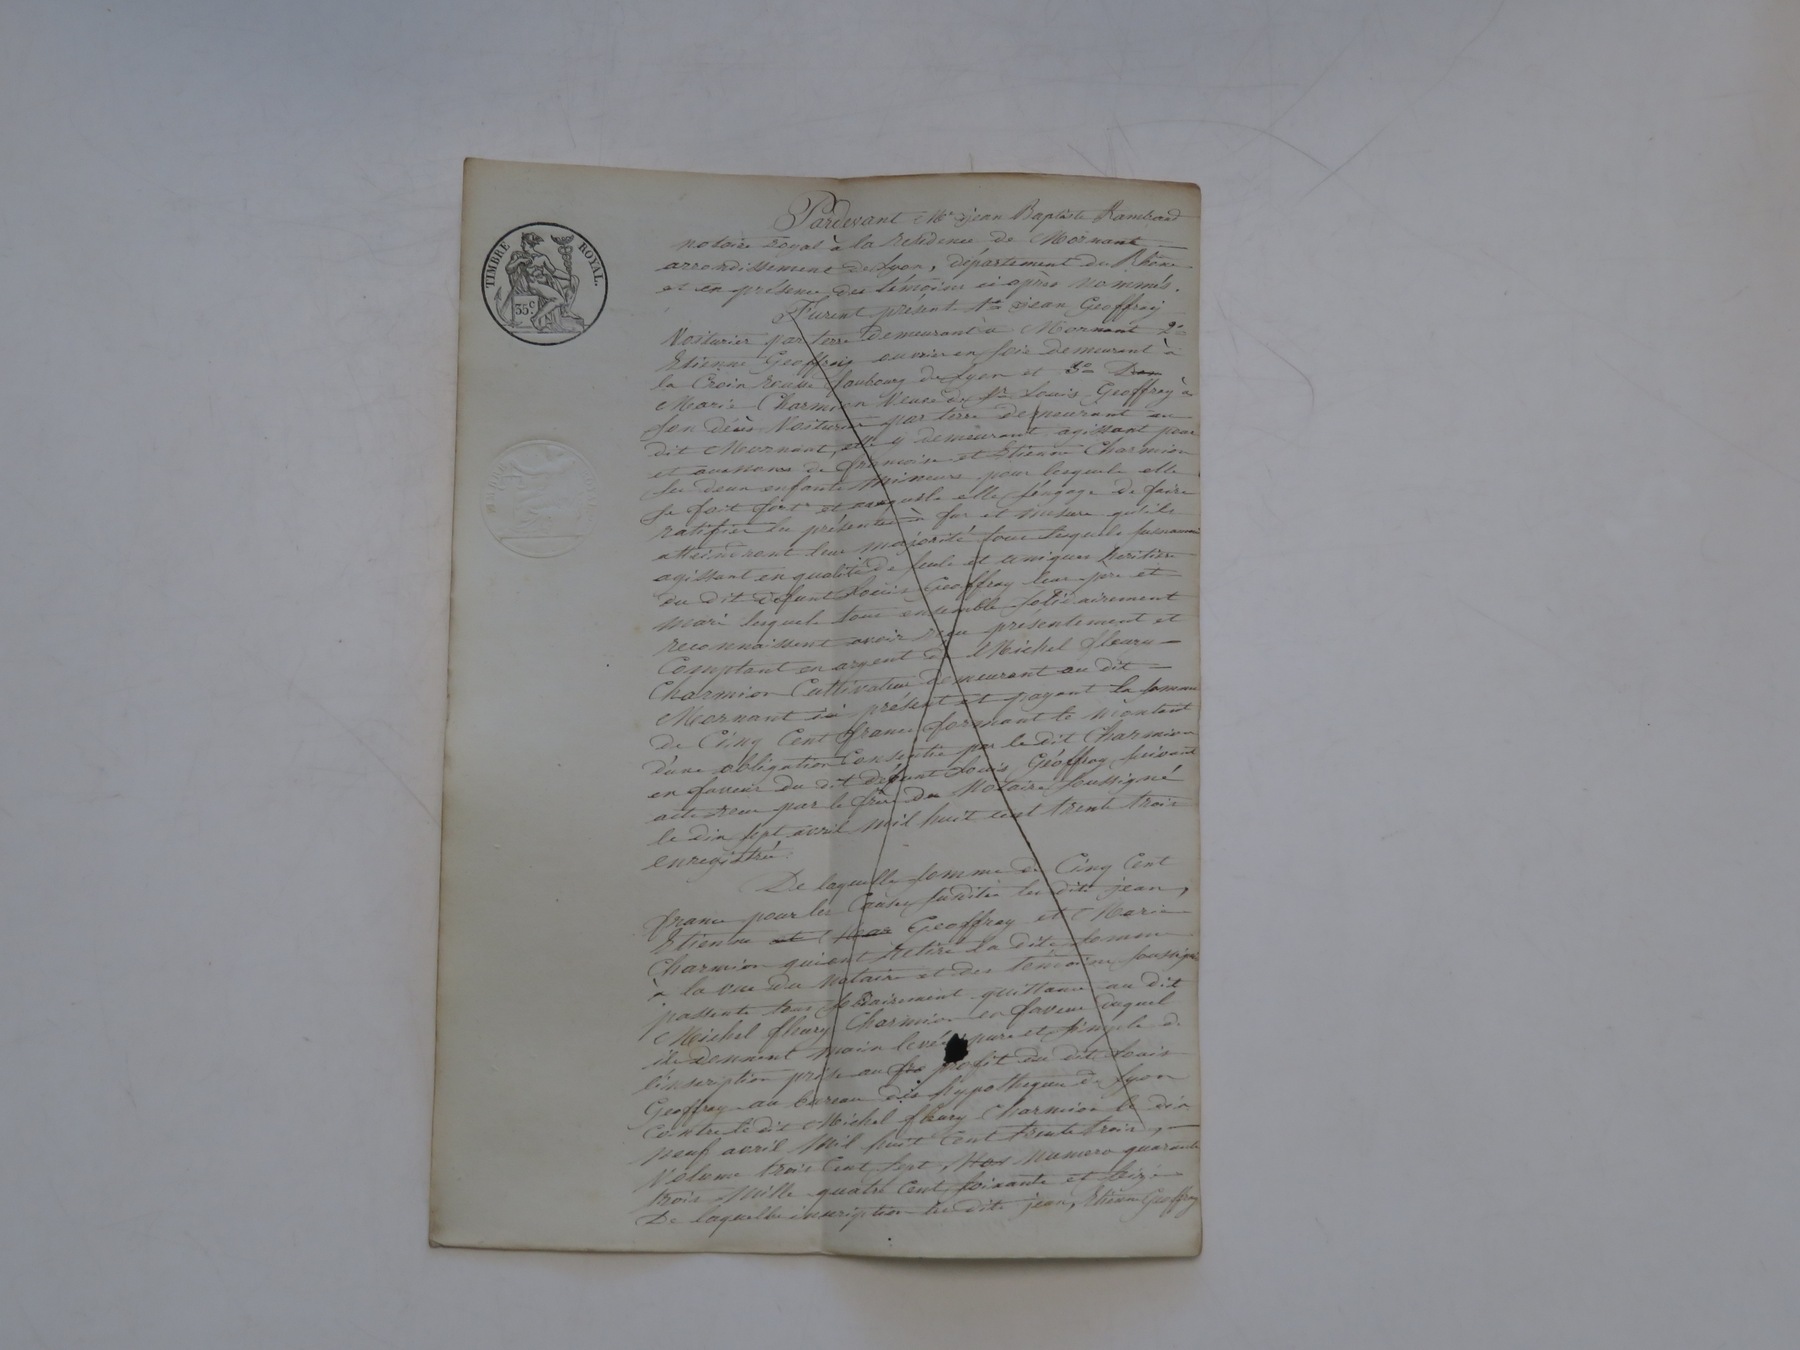 TIMBRE ROYAL.
35c
Pardevant Me jean Baptiste Rambaud
notaire royal à la residence de Mornant
arrondissement de Lyon, département du Rhône
et en présence des témoins ci après nommés.
Furent présent 1o jean Geoffray
Voiturier par terre demeurant à Mornant 2o
Etienne Geoffray ouvrier en soie demeurant à
la Croix rousse faubourg de Lyon et 3o Dam
Marie Charmion Veuve de Sr Louis Geoffray à
son décès Voiturier par terre demeurant au
dit Mornant, elle y demeurant agissant pour
et aux noms de françoise et Etienne Charmion
ses deux enfants mineurs pour lesquels elle
se fait fort et auxquels elle s'engage de faire
ratifier les présentes à fur et mesure qu'ils
atteindront leur majorité tous lesquels susnommés
agissant en qualité de seuls et uniques héritiers
du dit défunt Louis Geoffray leur père et
mari lesquels tous ensemble solidairement
reconnaissent avoir reçu présentement et
Comptant en argent de Michel fleury
Charmion Cultivateur demeurant au dit
Mornant ici présent et payant la somme
de Cinq Cent francs formant le montant
d'une obligation Consentie par le dit Charmion
en faveur du dit défunt Louis Geoffray suivant
acte reçu par le frère du Notaire soussigné
le dix sept avril mil huit cent trente trois
enregistré.
De laquelle somme de Cinq Cent
francs pour les Causes susdites les dits jean,
Etienne et Geoffray et Marie
Charmion qui ont retiré la dite somme
à la vue du Notaire et des témoins soussignés
passent tous solidairement quittance au dit
Michel fleury Charmion en faveur duquel
ils donnent main levée pure et simple de
l'inscription prise au profit du dit Louis
Geoffray au bureau des hypotheques de Lyon
Contre le dit Michel fleury Charmion le dix
neuf avril Mil huit Cent trente trois,
Volume trois Cent sept, Numero quarante
trois Mille quatre Cent soixante et seize
De laquelle inscription les dits jean, Etienne Geoffray